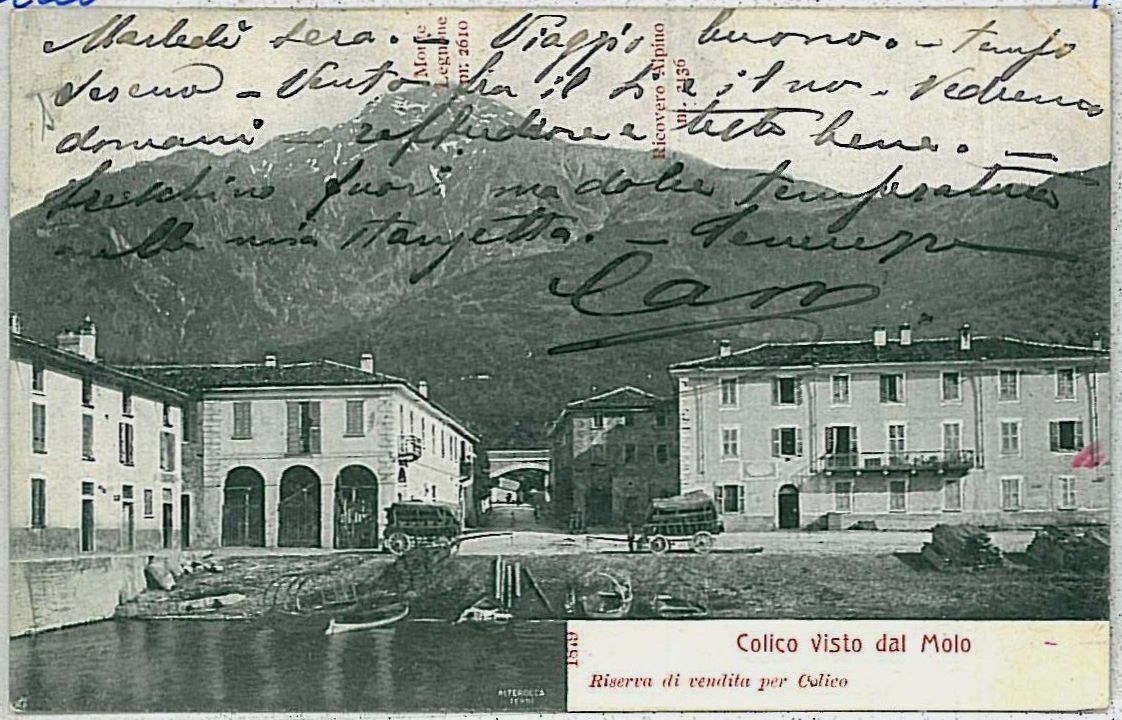 Martedì sera. Viaggio buono. - tempo
sereno - Vento fra il sì e il no - Vedremo
domani - raffreddore e testa bene. -
freschino fuori ma dolce temperatura
nella mia stanzetta. -
Monte
Legnone
m. 2610
Ricovero Alpino
m. 2136
1879
Colico Visto dal Molo
Riserva di vendita per Colico
ALTEROCCA
TERNI